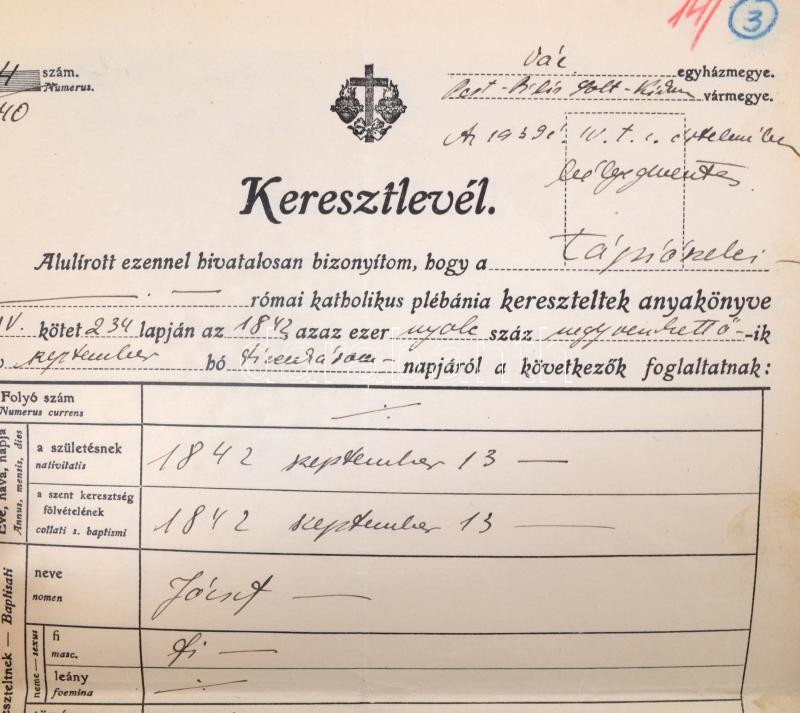 14/ 3
Vác egyházmegye.
4 szám.
Numerus.
Pest-Pilis Solt-Kiskun vármegye.
40
Az 1939 é. IV. t. c. értelmében
bélyegmentes
Keresztlevél.
Alulírott ezennel hivatalosan bizonyítom, hogy a Tápiószelei —
római katholikus plébánia kereszteltek anyakönyve
IV. kötet 234 lapján az 1842 azaz ezer nyolc száz negyvenkettő -ik
september hó tizenhárom napjáról a következők foglaltatnak:
Folyó szám
Numerus currens
Éve, hava, napja
Annus, mensis, dies
a születésnek
nativitatis
1842 september 13 —
a szent keresztség
fölvételének
collati s. baptismi
1842 september 13 —
Baptisati
neve
nomen
József —
neme — sexus
fi
masc.
fi —
leány
foemina